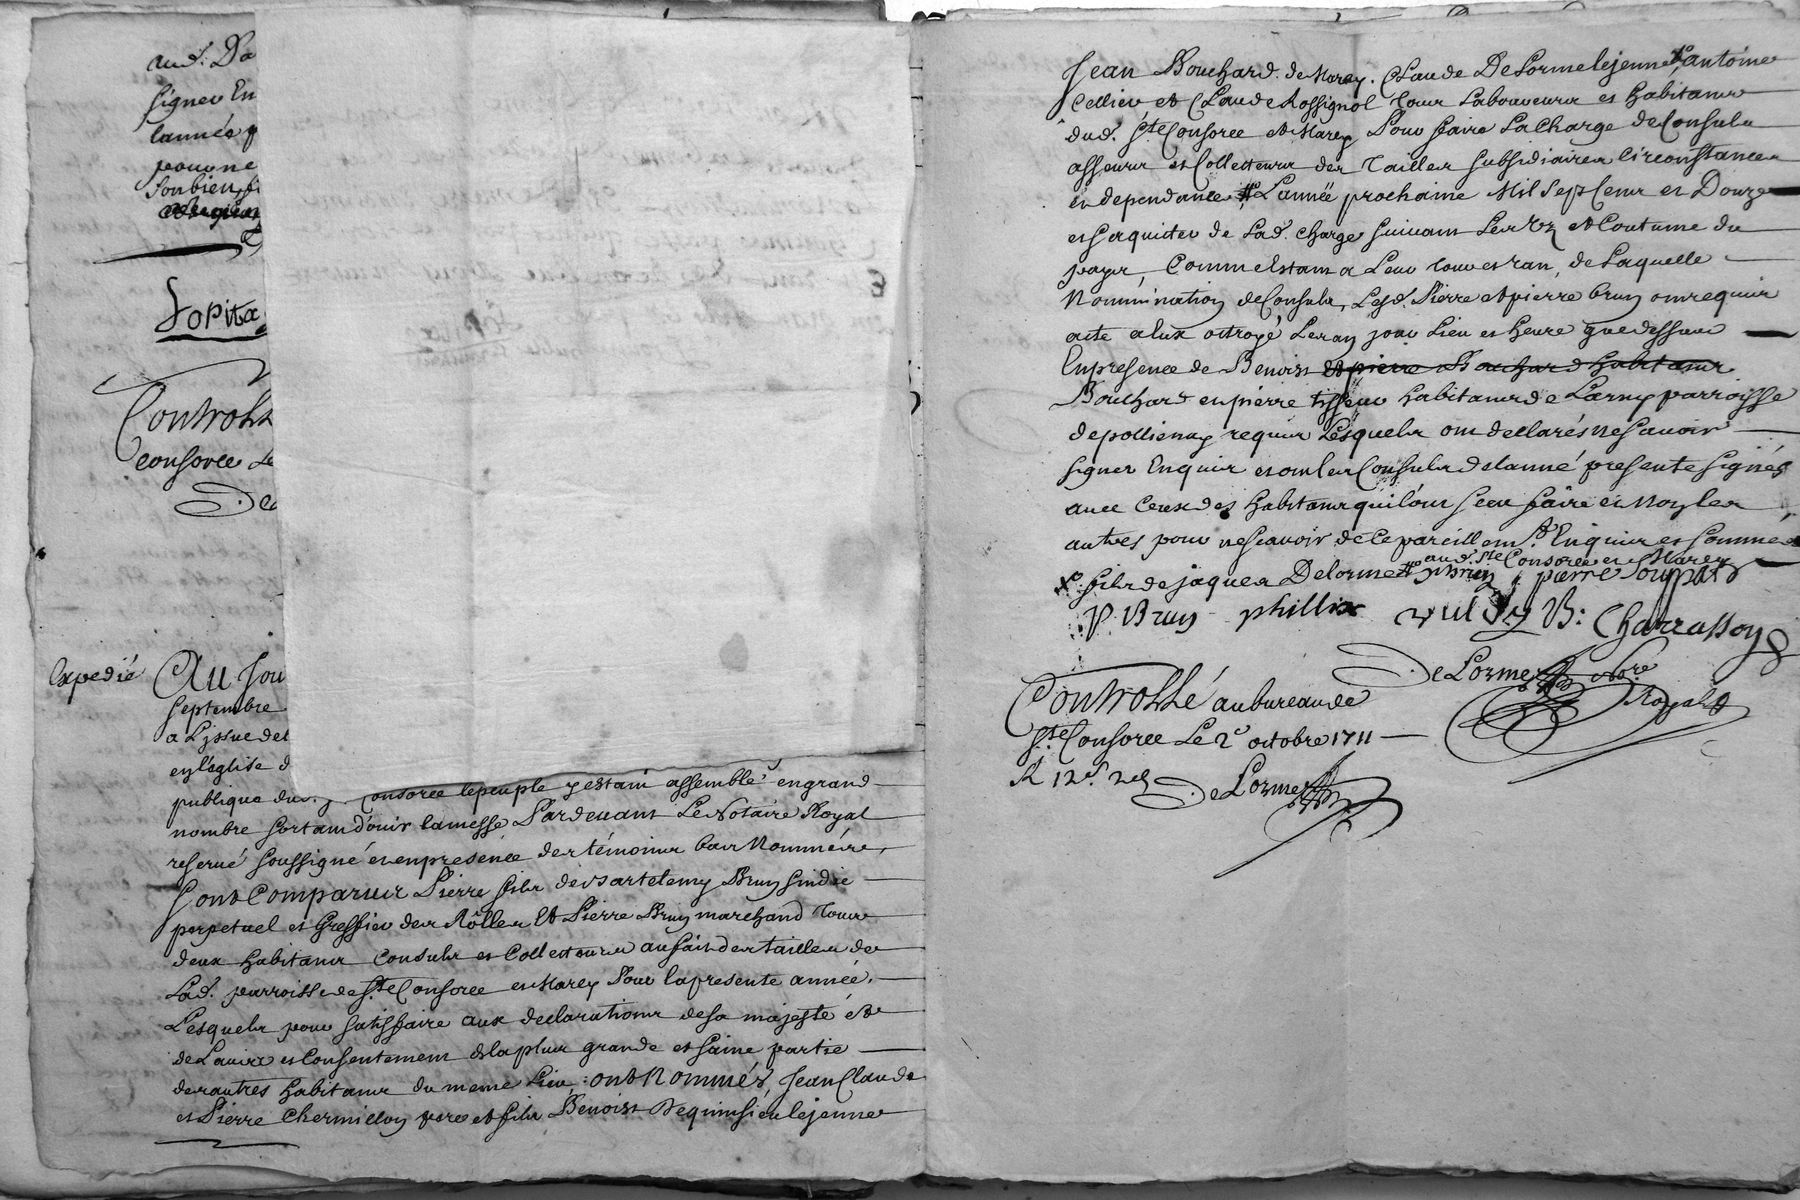 aud. Da
signer En
lannée p
pour ne
son bien fi
Lopita
Controllé
consorce Le
De
Expedié
Au Jou
septembre
a Lissue de
en l'eglise d
publique dud. consorce le peuple y estant assemblé en grand
nombre sortant d'ouir la messe Pardevant Le Notaire Royal
reservé soussigné et en presence des témoins bas Nommés,
sont Comparus Pierre fils de Bartelemy Brun sindic
perpetuel et Greffier des Rôlles Et Pierre Brun marchand tous
deux habitans Consuls et Collecteurs au fait des tailles de
Lad. parroisse de Ste Consorce et Marcy Pour la presente année,
Lesquels pour satisfaire aux declarations de sa majesté et de
de Lavis et Consentement de la plus grande et saine partie
des autres habitans du meme Lieu; ont Nommés, Jean Claude
et Pierre Chermillon pere et fils Benoist Dequinsieu le jenne
Jean Bouchard de Marcy. Claude DeLorme le jenne, antoine
Cellier et Claude Rossignol tous Laboureurs et habitans
dud. Ste Consorce et Marcy Pour faire La Charge de Consuls
asseeurs et Collecteurs des Tailles subsidiaires Circonstances
et dependances L'année prochaine Mil Sept Cens et Douze
et s'aquiter de Lad. Charge suivant Les Us et Coutume du
pays, Comme Estant a Leur tour et ran, de Laquelle
Nommination de Consuls, Lesd. Pierre et pierre brun ont requis
acte a Eux octroyé Les an jour Lieu et heure que dessus
En presence de Benoist et pierre Bouchard habitans
Bouchard et pierre tisseur habitans de Larny parroisse
de pollienay requis Lesquels ont declarés ne scavoir
signer Enquis et ont les Consuls de lanné presente signés
avec Ceux des habitans qui l'ont sceu faire et Non les
autres pour ne scavoir de Ce pareillemt. Enquis et sommés
aud. Ste Consorce et Marcy
fils de jaques Delorme p brun pierre
P. Brun phillis B: Charrasson
DeLorme Nore
Royal
Controllé au bureau de
Ste Consorce Le 2e octobre 1711
R 12s 2d
DeLorme